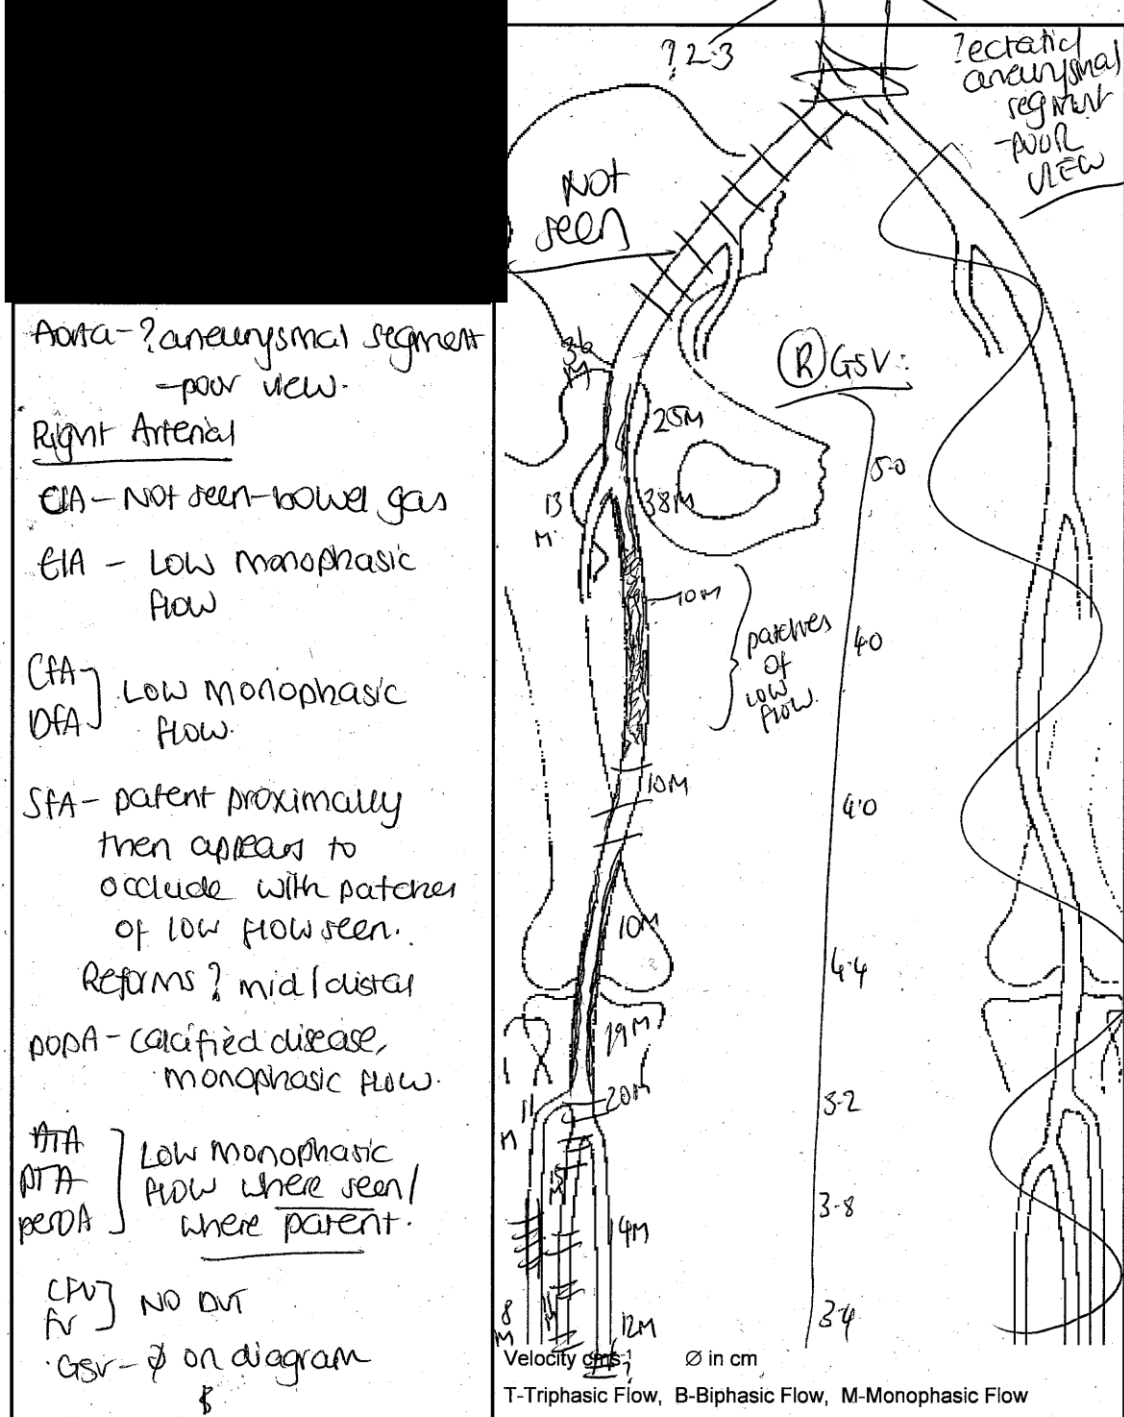 Aorta - ? aneurysmal segment
- poor view.
Right Arterial
CIA - Not seen - bowel gas
EIA - Low monophasic
flow
CFA
DFA
Low monophasic
flow.
SFA - patent proximally
then appears to
occlude with patches
of low flow seen.
Reforms ? mid/distal
POPA - Calcified disease,
monophasic flow.
ATA
PTA
PeroA
Low monophasic
flow where seen/
where patent.
CFV
FV
NO DVT
GSV - ø on diagram
? 2.3
? ectatic/
aneurysmal
segment
- poor
view
Not
seen
36
M
25M
13
M
38M
10M
patches
of
low
flow.
10M
10M
19M
20M
11
M
14M
8
M
12M
(R) GSV:
5.0
4.0
4.0
4.4
3.2
3.8
3.4
Velocity cms-1
Ø in cm
T-Triphasic Flow, B-Biphasic Flow, M-Monophasic Flow